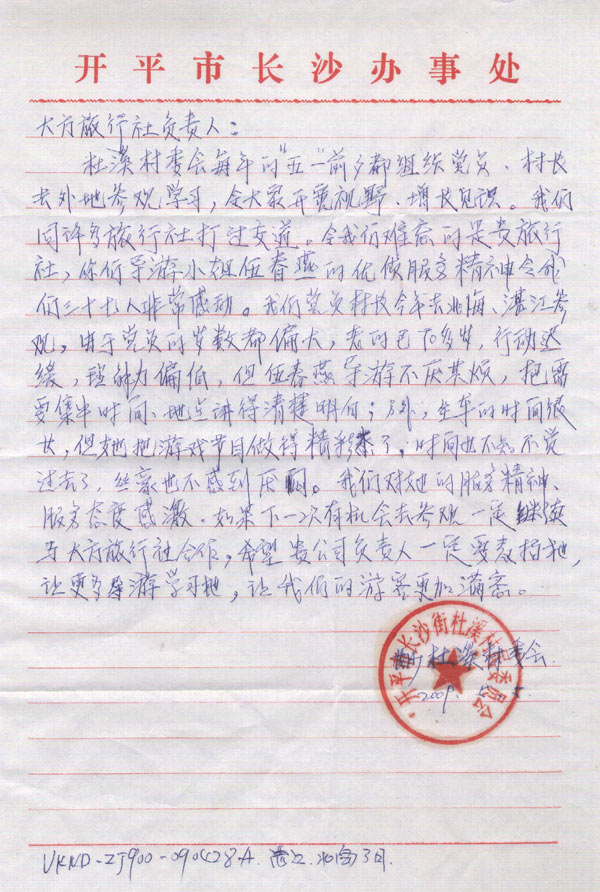 开平市长沙办事处
大方旅行社负责人：
杜溪村委会每年的“五一”前夕都组织党员、村长
去外地参观学习，令大家开宽视野、增长见识。我们
同许多旅行社打过交道。令我们难忘的是贵旅行
社，你们导游小姐伍春燕的优质服务精神令我
们三十七人非常感动。我们党员村长今年去北海、湛江参
观，由于党员的岁数都偏大，老的已70多岁，行动迟
缓，理解力偏低，但伍春燕导游不厌其烦，把需
要集中时间、地点讲得清楚明白；另外，坐车的时间很
长，但她把游戏节目做得精彩了，时间也不知不觉
过去了，丝毫也不感到厌闷。我们对她的服务精神、
服务态度感激。如果下一次有机会去参观一定继续
与大方旅行社合作，希望贵公司负责人一定要表扬她，
让更多导游学习她，让我们的游客更加满意。
开平市长沙街杜溪村民委员会
杜溪村委会
2009.5.
VKND-ZJ900-090428A.湛江.北海3日.